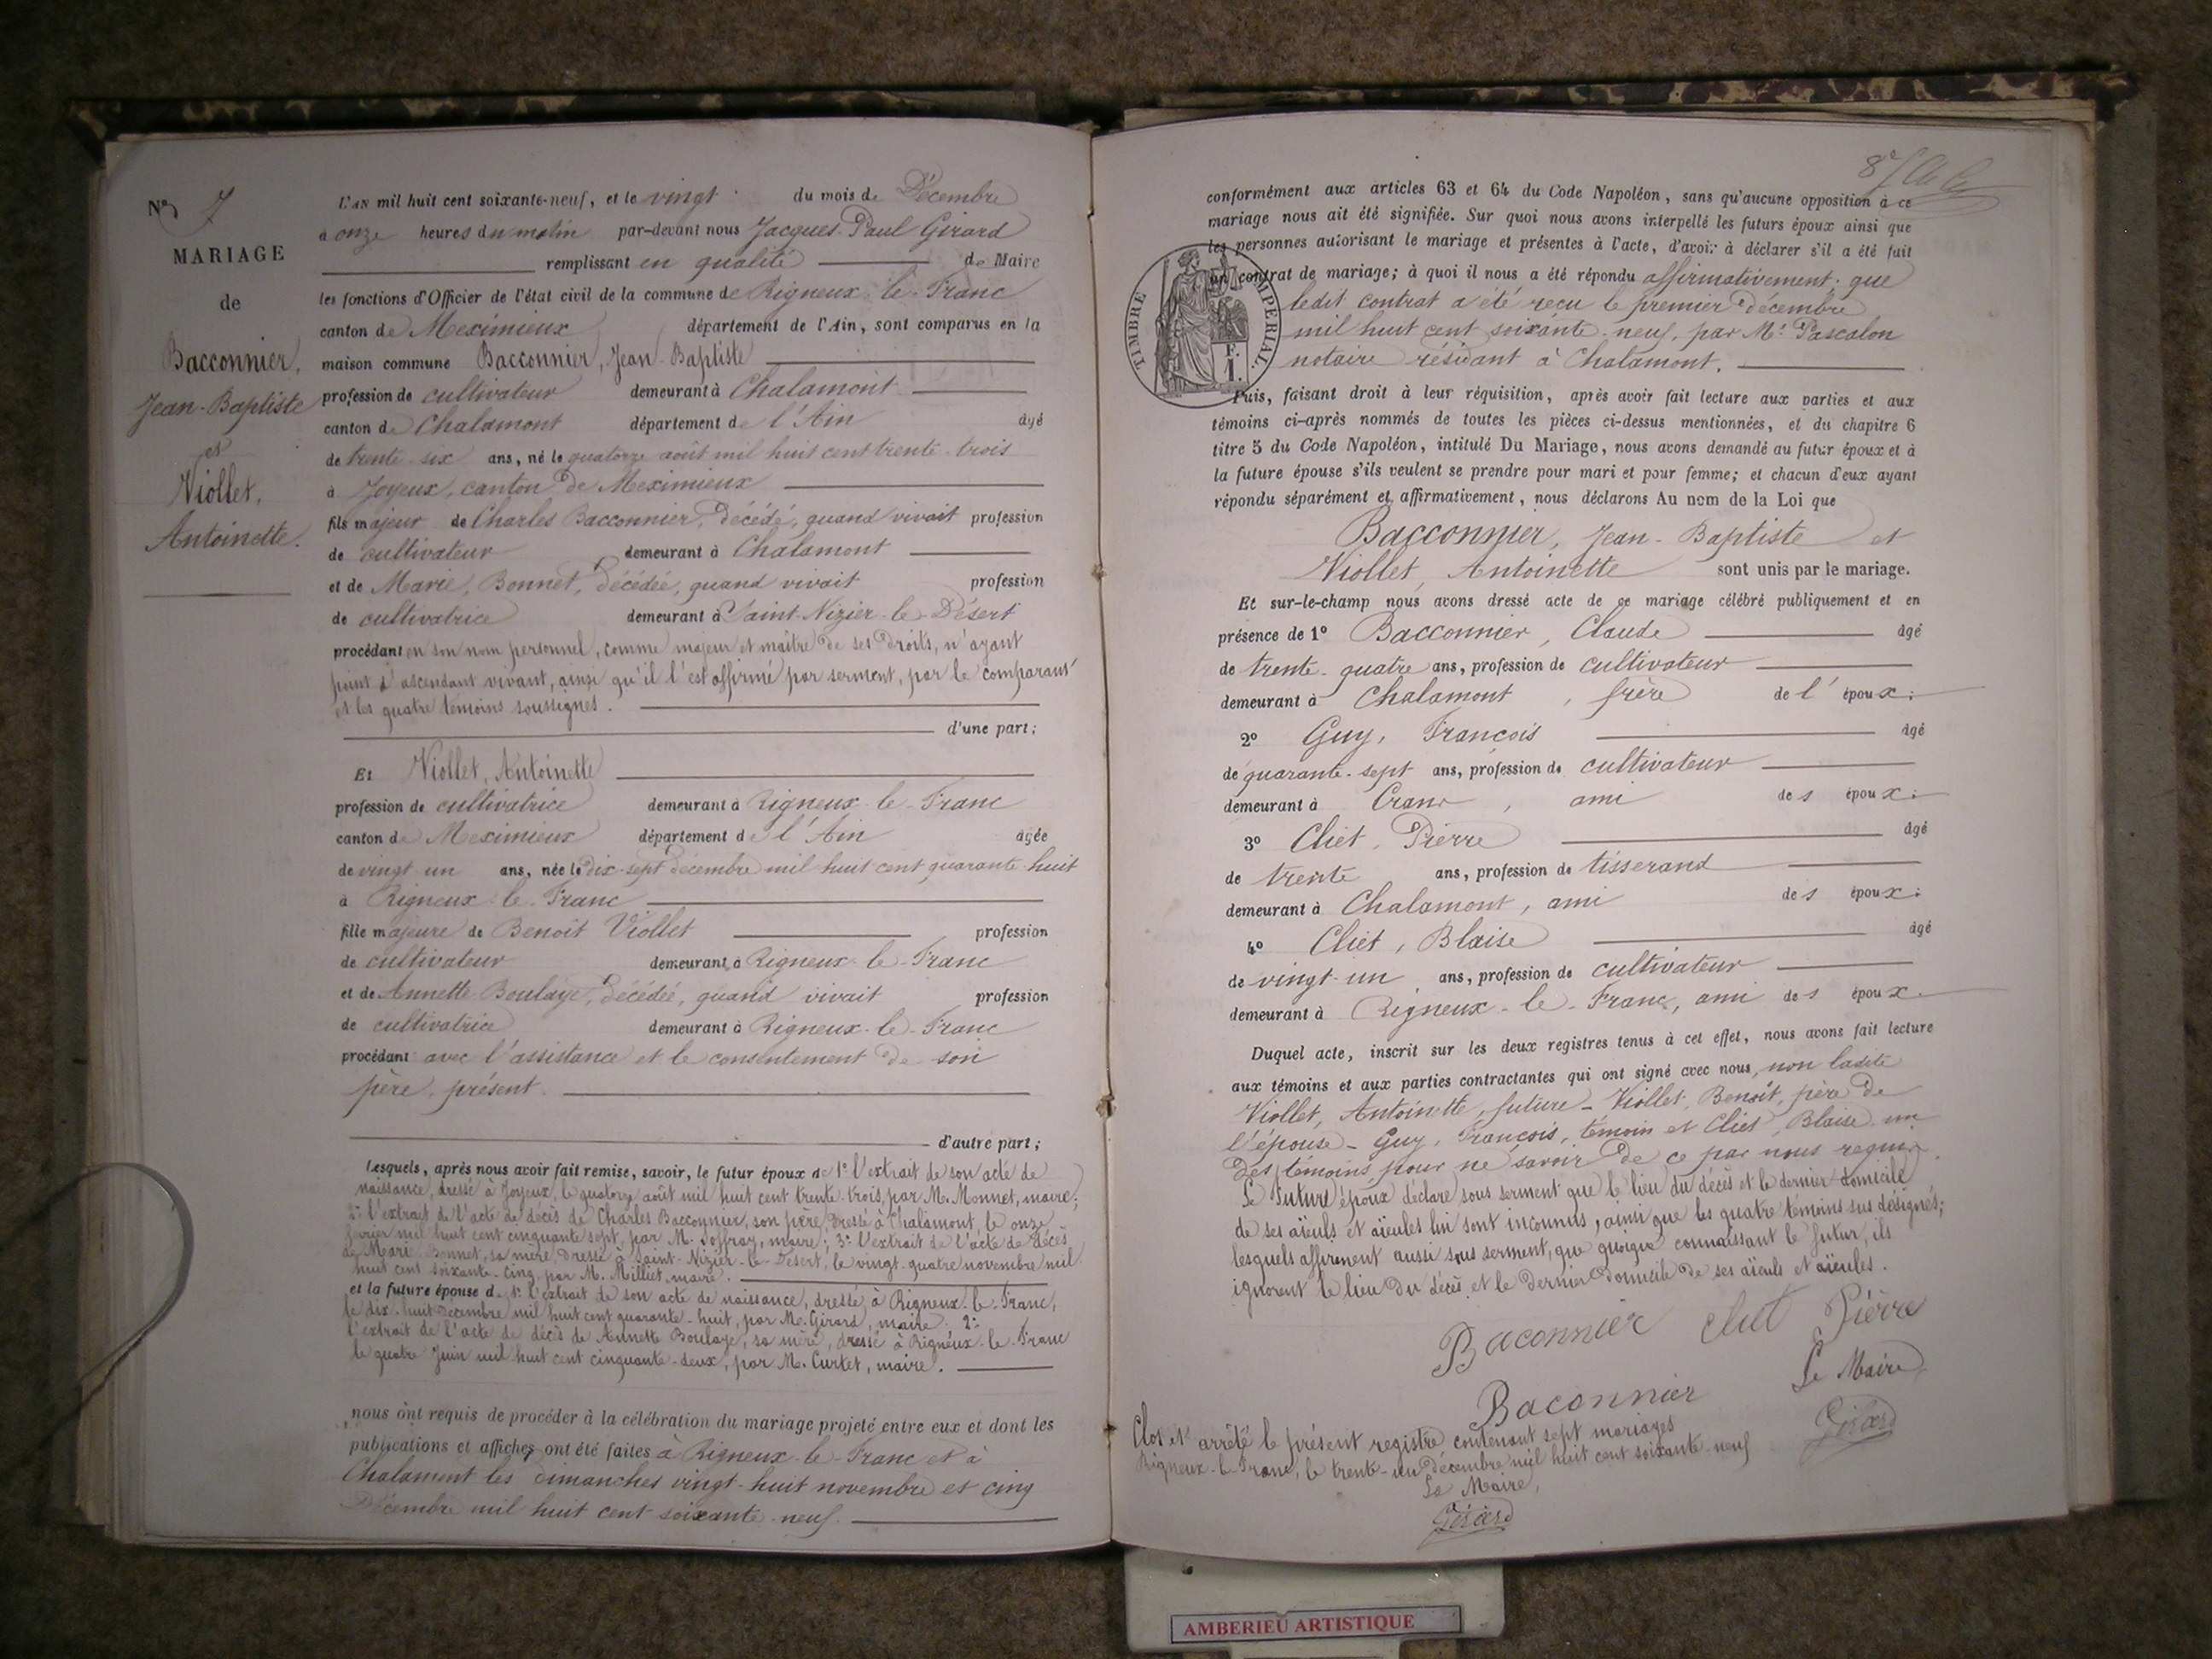 N° 7
MARIAGE
de
Bacconnier,
Jean-Baptiste
et
Viollet,
Antoinette.
L'AN mil huit cent soixante-neuf, et le vingt du mois de Décembre
à onze heures du matin par-devant nous Jacques-Paul Girard
remplissant en qualité de Maire
les fonctions d'Officier de l'état civil de la commune de Rigneux-le-Franc
canton de Meximieux département de l'Ain, sont comparus en la
maison commune Bacconnier, Jean-Baptiste
profession de cultivateur demeurant à Chalamont
canton de Chalamont département de l'Ain âgé
de trente-six ans, né le quatorze août mil huit cent trente-trois
à Joyeux, canton de Meximieux
fils majeur de Charles Bacconnier, décédé, quand vivait profession
de cultivateur demeurant à Chalamont
et de Marie, Bonnet, décédée, quand vivait profession
de cultivatrice demeurant à Saint-Nizier-le-Désert
procédant en son nom personnel, comme majeur et maître de ses droits, n'ayant
point d'ascendant vivant, ainsi qu'il l'est affirmé par serment, par le comparant
et les quatre témoins soussignés.
d'une part;
Et Viollet, Antoinette
profession de cultivatrice demeurant à Rigneux-le-Franc
canton de Meximieux département de l'Ain âgée
de vingt un ans, née le dix-sept décembre mil huit cent quarante-huit
à Rigneux-le-Franc
fille majeure de Benoit Viollet profession
de cultivateur demeurant à Rigneux-le-Franc
et de Annette Boulaye, décédée, quand vivait profession
de cultivatrice demeurant à Rigneux-le-Franc
procédant avec l'assistance et le consentement de son
père, présent.
d'autre part;
Lesquels, après nous avoir fait remise, savoir, le futur époux de 1° l'extrait de son acte de
naissance, dressé à Joyeux, le quatorze août mil huit cent trente-trois, par M. Monnet, maire;
2° l'extrait de l'acte de décès de Charles Bacconnier, son père, dressé à Chalamont, le onze
février mil huit cent cinquante sept, par M. Joffray, maire; 3° l'extrait de l'acte de décès
de Marie Bonnet, sa mère, dressé à Saint-Nizier-le-Désert, le vingt-quatre novembre mil
huit cent soixante-cinq, par M. Milliet, maire.
et la future épouse d 1° l'extrait de son acte de naissance, dressé à Rigneux-le-Franc,
le dix-huit décembre mil huit cent quarante-huit, par M. Girard, maire. 2°
l'extrait de l'acte de décès de Annette Boulaye, sa mère, dressé à Rigneux-le-Franc
le quatre Juin mil huit cent cinquante-deux, par M. Curtet, maire.
nous ont requis de procéder à la célébration du mariage projeté entre eux et dont les
publications et affiches ont été faites à Rigneux-le-Franc et à
Chalamont les dimanches vingt-huit novembre et cinq
Décembre mil huit cent soixante-neuf.
conformément aux articles 63 et 64 du Code Napoléon, sans qu'aucune opposition à ce
mariage nous ait été signifiée. Sur quoi nous avons interpellé les futurs époux ainsi que
les personnes autorisant le mariage et présentes à l'acte, d'avoir à déclarer s'il a été fait
un contrat de mariage; à quoi il nous a été répondu affirmativement: que
ledit contrat a été reçu le premier décembre
mil huit cent soixante-neuf, par Me Pascalon
notaire résidant à Chalamont.
TIMBRE IMPERIAL.
F.
1.
Puis, faisant droit à leur réquisition, après avoir fait lecture aux parties et aux
témoins ci-après nommés de toutes les pièces ci-dessus mentionnées, et du chapitre 6
titre 5 du Code Napoléon, intitulé Du Mariage, nous avons demandé au futur époux et à
la future épouse s'ils veulent se prendre pour mari et pour femme; et chacun d'eux ayant
répondu séparément et affirmativement, nous déclarons Au nom de la Loi que
Bacconnier, Jean-Baptiste et
Viollet, Antoinette sont unis par le mariage.
Et sur-le-champ nous avons dressé acte de ce mariage célébré publiquement et en
présence de 1° Bacconnier, Claude âgé
de trente-quatre ans, profession de cultivateur
demeurant à Chalamont, frère de l'époux:
2° Guy, François âgé
de quarante-sept ans, profession de cultivateur
demeurant à Crans, ami des époux:
3° Cliet, Pierre âgé
de trente ans, profession de tisserand
demeurant à Chalamont, ami des époux:
4° Cliet, Blaise âgé
de vingt-un ans, profession de cultivateur
demeurant à Rigneux-le-Franc, ami des époux.
Duquel acte, inscrit sur les deux registres tenus à cet effet, nous avons fait lecture
aux témoins et aux parties contractantes qui ont signé avec nous, non ladite
Viollet, Antoinette, future - Viollet, Benoît, père de
l'épouse - Guy, François, témoin et Cliet, Blaise un
des témoins pour ne savoir de ce par nous requis.
Le futur époux déclare sous serment que le lieu du décès et le dernier domicile
de ses aïeuls et aïeules lui sont inconnus, ainsi que les quatre témoins sus désignés;
lesquels affirment aussi sous serment, que quoique connaissant le futur, ils
ignorent le lieu du décès et le dernier domicile de ses aïeuls et aïeules.
Baconnier Cliet Pièrre
Baconnier Le Maire,
Girard
Clos et arrêté le présent registre contenant sept mariages
Rigneux-le-Franc, le trente-un décembre mil huit cent soixante-neuf
Le Maire,
Girard
AMBERIEU ARTISTIQUE